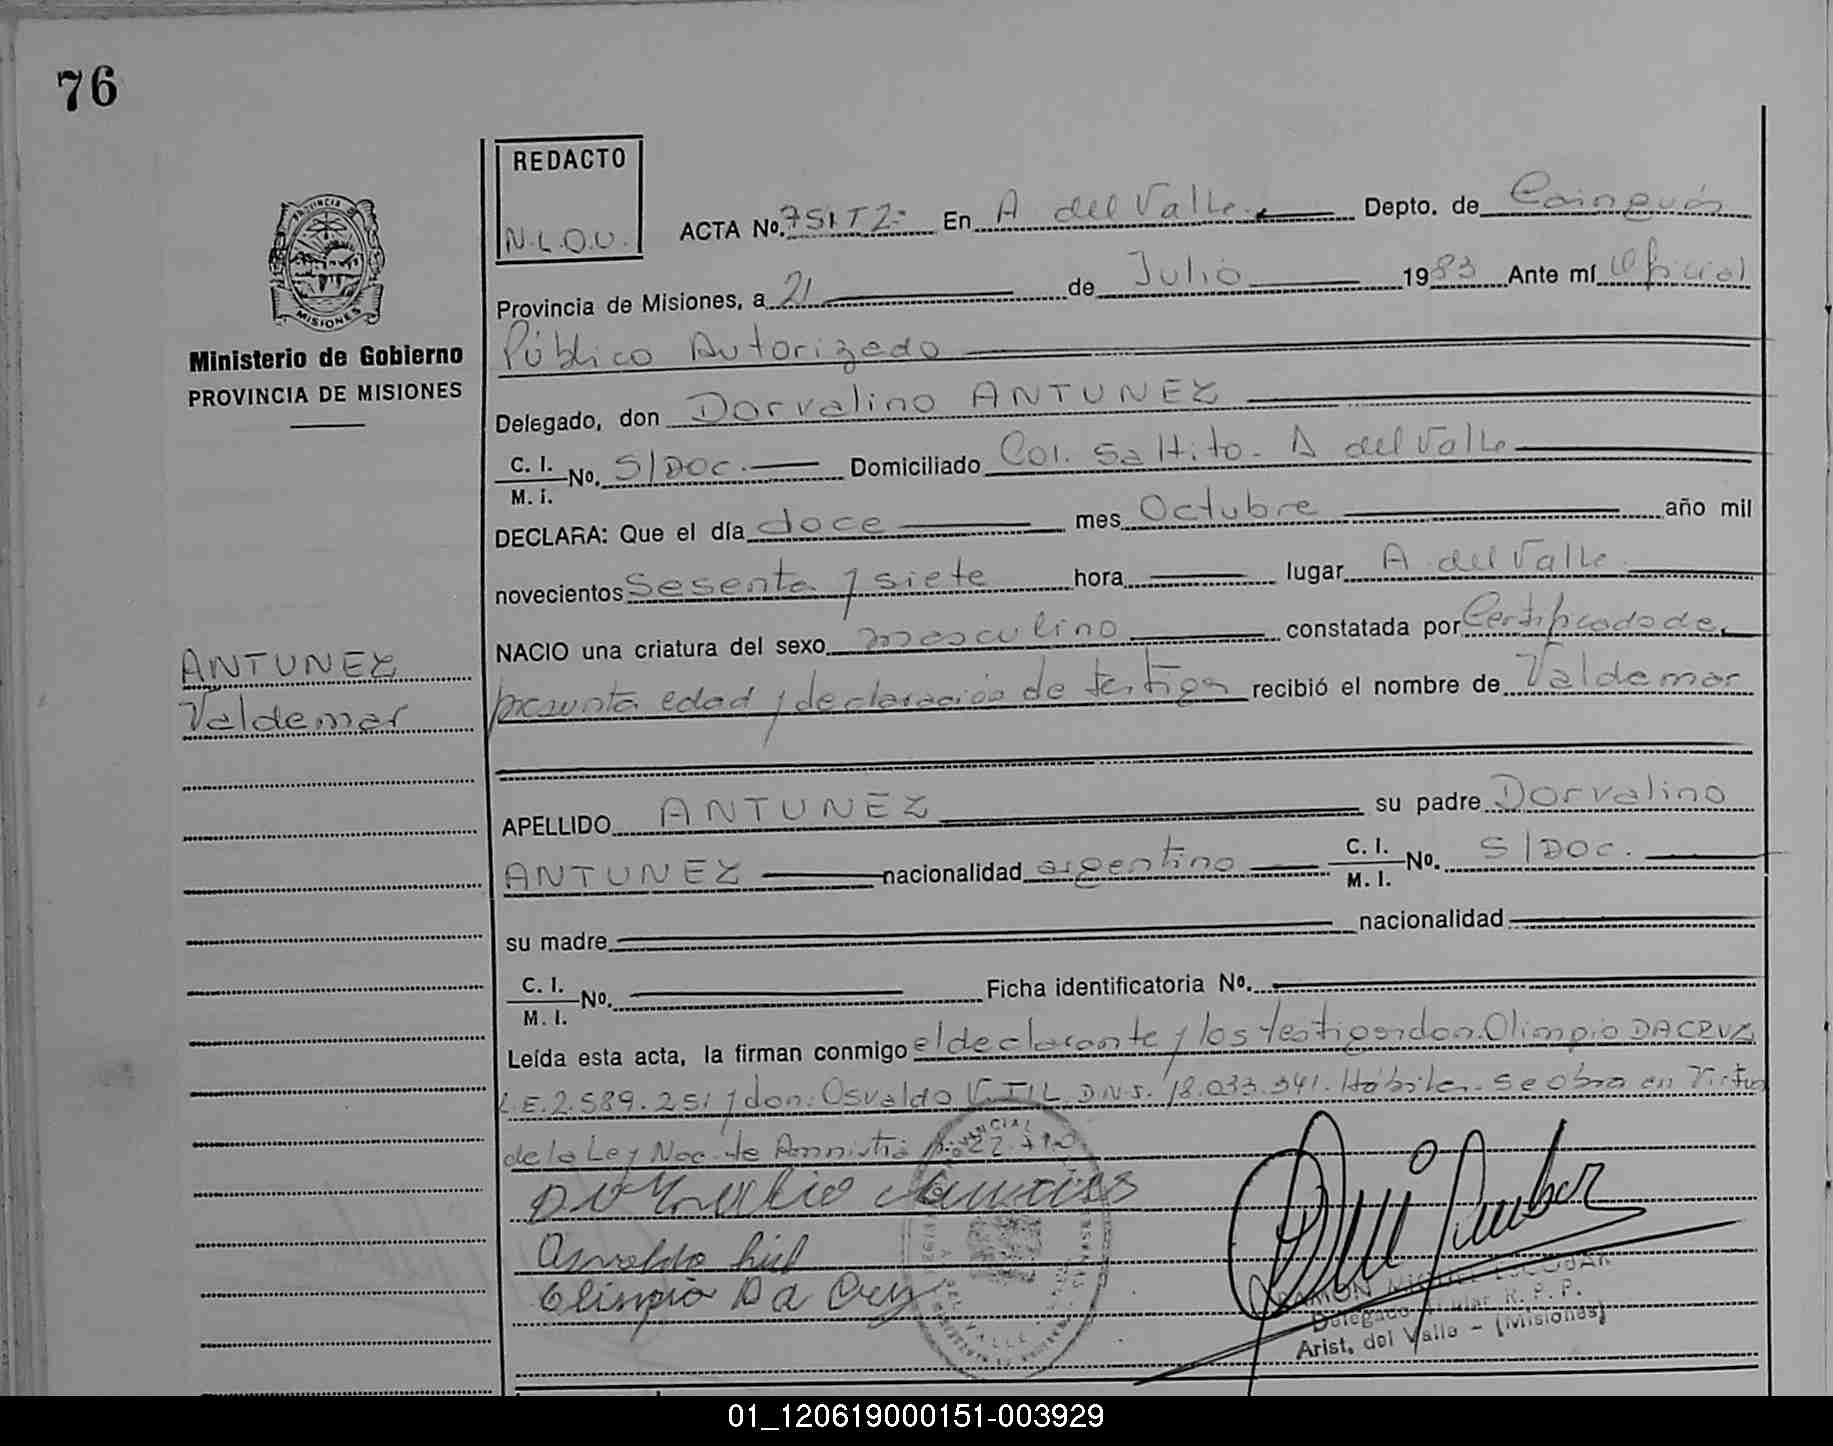 76
REDACTO
N.L.O.U.
ACTA No. 75 IT 2: En A del Valle Depto. de Cainguás
Provincia de Misiones, a 21 de Julio 1983 Ante mí Oficial
Público Autorizado
Delegado, don Dorvalino ANTUNEZ
C. I. M. I. No. S/DOC. Domiciliado Col. Saltito - A del Valle
DECLARA: Que el día doce mes Octubre año mil
novecientos sesenta y siete hora lugar A del Valle
NACIO una criatura del sexo masculino constatada por Certificado de
presunta edad y declaración de testigos recibió el nombre de Valdemar
APELLIDO ANTUNEZ su padre Dorvalino
ANTUNEZ nacionalidad argentino C. I. M. I. No. S/DOC.
su madre nacionalidad
C. I. M. I. No. Ficha identificatoria No.
Leída esta acta, la firman conmigo el declarante y los testigos don. Olimpio DACRUZ
L.E. 2.589.251 y don: Osvaldo D.N.I. 18.033.341. Hábiles. Se obra en Virtud
de la Ley Nac. de Amnistía
Osvaldo
Olimpio Da Cruz
RAMON MIGUEL ESCOBAR
Delegado Titular R. P. P.
Arist. del Valle - (Misiones)
PROVINCIA DE
MISIONES
Ministerio de Gobierno
PROVINCIA DE MISIONES
ANTUNEZ
Valdemar
01_120619000151-003929